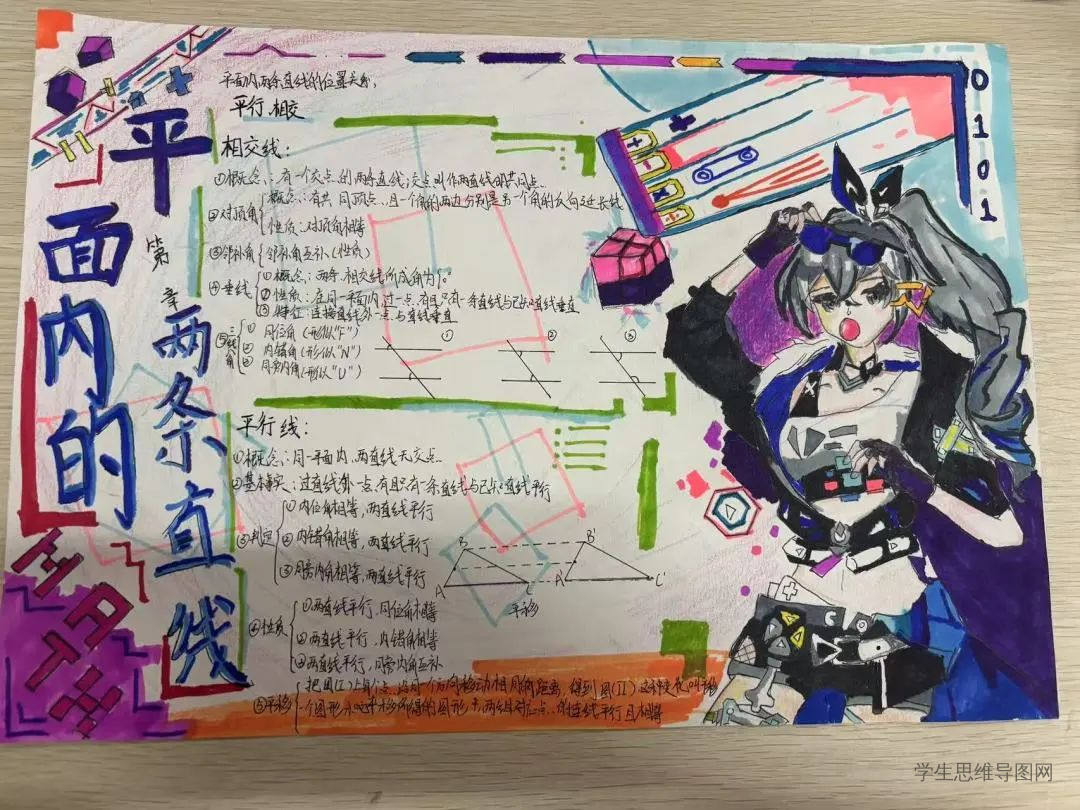 平面内的
第
章
两条直线
MATH
0101
平面内两条直线的位置关系:
平行、相交
相交线:
①概念:有一个交点的两条直线,交点叫作两直线的共同点.
②对顶角
概念:有共同顶点,且一个角的两边分别是另一个角的反向延长线
性质:对顶角相等
③邻补角
邻补角互补(性质)
④垂线
①概念:两条相交线所成角为
②性质:在同一平面内,过一点有且只有一条直线与已知直线垂直
③ 连接直线外一点与直线垂直
⑤三线八角
① 同位角(形似"F")
② 内错角(形似"N")
③ 同旁内角(形似"U")
①
②
③
平行线:
①概念:同一平面内,两直线无交点.
②基本事实:过直线外一点,有且只有一条直线与已知直线平行
③判定
①内位角相等,两直线平行
②内错角相等,两直线平行
③同旁内角相等,两直线平行
B
B'
A
C
A'
C'
平移
④性质
①两直线平行,同位角相等
②两直线平行,内错角相等
③两直线平行,同旁内角互补
⑤平移
把图(I)上所有点沿同一个方向移动相同的距离,得到图(II)这种变化叫平移
一个图形 平移所得的图形中,两组对应点的连线平行且相等
学生思维导图网